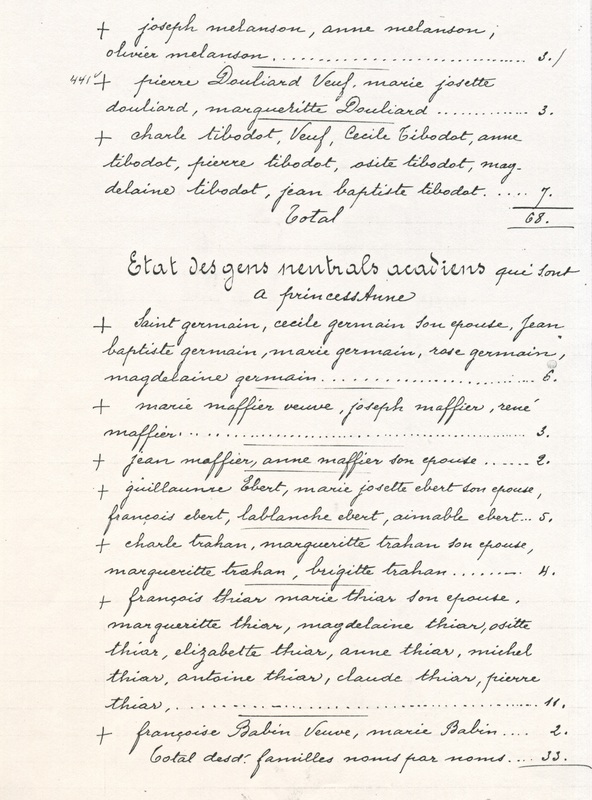 + joseph melanson, anne melanson,
olivier melanson .......... 3. /
441 + pierre Douliard Veuf, marie josette
douliard, margueritte Douliard .......... 3.
+ charle tibodot, Veuf, Cecile Tibodot, anne
tibodot, pierre tibodot, osite tibodot, mag-
delaine tibodot, jean baptiste tibodot ..... 7.
Total 68.
Etat des gens neutrals acadiens qui sont
a princessAnne
+ Saint germain, cecile germain son epouse, Jean
baptiste germain, marie germain, rose germain,
magdelaine germain .......... 6.
+ marie maffier veuve, joseph maffier, rené
maffier .......... 3.
+ jean maffier, anne maffier son epouse ...... 2.
+ guillaume Ebert, marie josette ebert son epouse,
françois ebert, lablanche ebert, aimable ebert... 5.
+ charle trahan, margueritte trahan son epouse,
margueritte trahan, brigitte trahan ........ 4.
+ françois thiar marie thiar son epouse,
margueritte thiar, magdelaine thiar, ositte
thiar, elizabette thiar, anne thiar, michel
thiar, antoine thiar, claude thiar, pierre
thiar, .......... 11.
+ françoise Babin Veuve, marie Babin.... 2.
Total desdt. familles noms par noms.... 33.